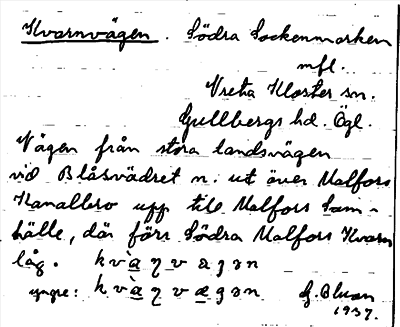 Kvarnvägen. Södra Sockenmarken
mfl.
Vreta Kloster sn.
Gullbergs hd. Ögl.
Vägen från stora landsvägen
vid Blåsvädret n. ut över Malfors
Kanalbro upp till Malfors Sam-
hälle, där förr Södra Malfors Kvarn
låg. kvàɳvægən
yngre: kvàɳvægən G.
1937.